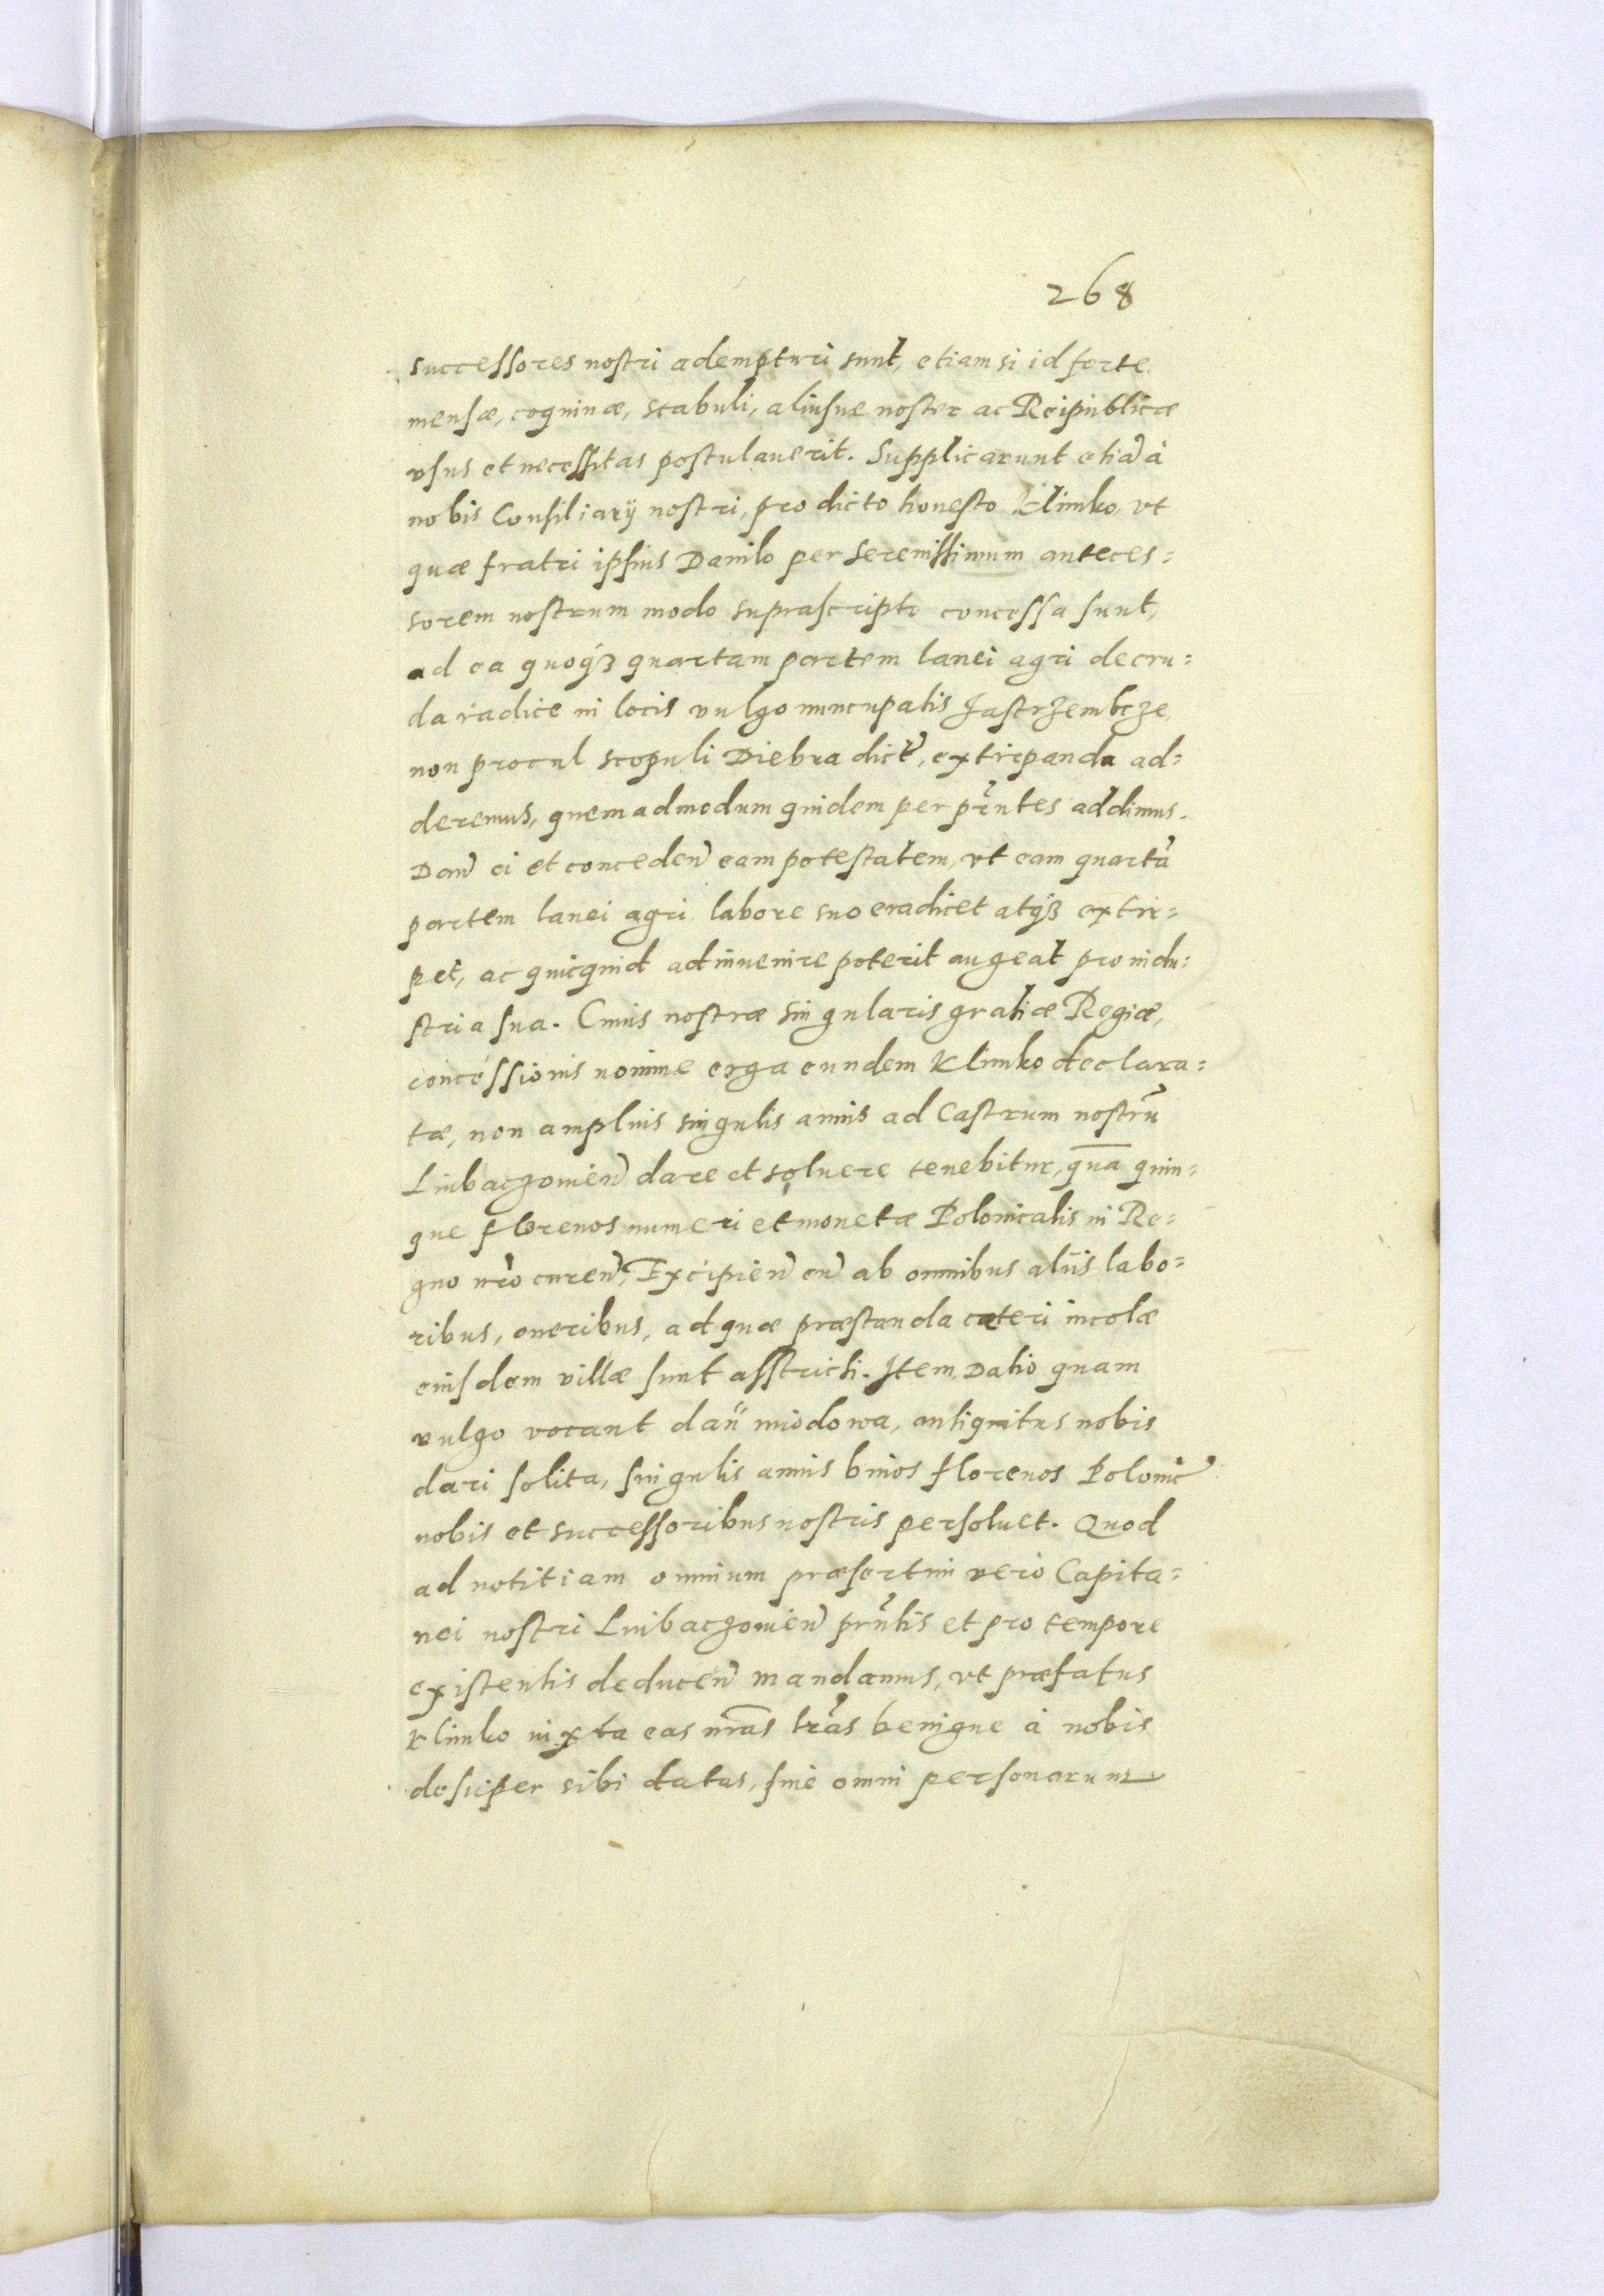 268
successores nostri adempturi sunt, etiam si id forte
mensæ, coquinæ, stabuli, aliusue noster ac Reipublicæ
vsus et necessitas postulauerit. Supplicarunt etiã à
nobis Consiliarij nostri, pro dicto honesto Klimko, vt
quæ fratri ipsius Danilo per Serenissimum anteces=
sorem nostrum modo suprascripto concessa sunt,
ad ea quoqȝ quartam partem lanei agri de cru=
da radice in locis vulgo nuncupatis Jastrzembcze,
non procul scopuli Diebra dict̃, extirpanda ad=
deremus, quemadmodum quidem per pñtes addimus.
Dañ ei et conceden̄ eam potestatem, vt eam quartã
partem lanei agri labore suo eradicet atqȝ extir=
pet, ac quicquid adinuenire poterit augeat pro indu=
stria sua. Cuius nostræ singularis gratiæ Regiæ,
concessionis nomine erga eundem Klimko declara=
tæ, non amplius singulis annis ad Castrum nostrũ
Lubaczouien̄ dare et soluere tenebitur, qua̅ quin=
que florenos numeri et monetæ Polonicalis in Re=
gno nr̃o curen̄, Excipien̄ eũ ab omnibus aliis labo=
ribus, oneribus, ad quæ præstanda cæteri incolæ
eiusdem villæ sunt asstricti. Item Datio quam
vulgo vocant dań miodowa, antiquitus nobis
dari solita, singulis annis binos florenos Polonic̃
nobis et successoribus nostris persoluet. Quod
ad notitiam omnium præsertim vero Capita=
nei nostri Lubaczouien̄ pñtis et pro tempore
existentis deducen̄ mandamus, vt præfatus
Klimko iuxta eas nr̃as lr̃as benigne à nobis
desuper sibi datas, sine omni personarum